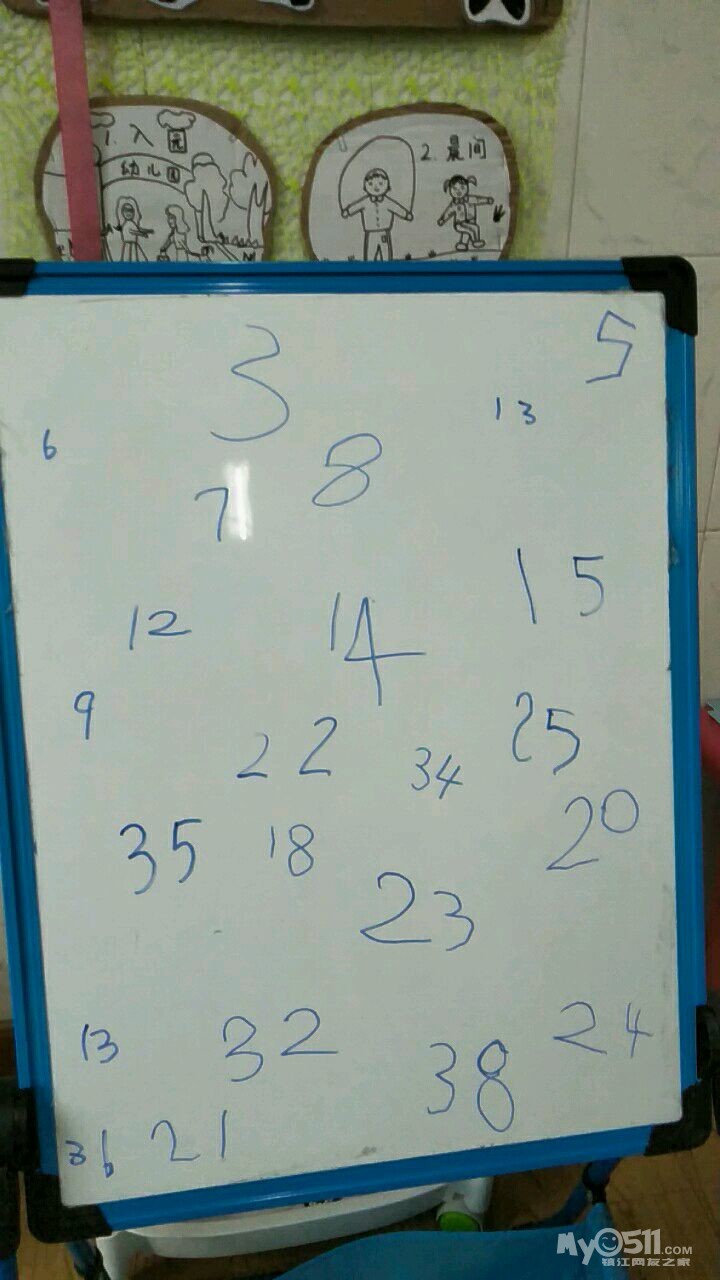 1. 入园
幼儿园
2. 晨间
3
5
13
6
8
7
15
12
14
9
22
25
34
35
18
20
23
13
32
24
38
36
21
My0511.COM
镇江网友之家